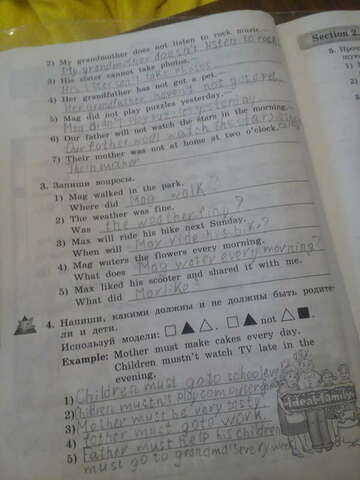 2) My grandmother does not listen to rock music.
My grandmother doesn't listen to rock
3) His sister cannot take photos.
His sister can't take photos
4) Her grandfather has not got a pet.
Her grandfather haven't got a pet
5) Mag did not play puzzles yesterday.
Mag didn't play yesterday
6) Our father will not watch the stars in the morning.
Our father watch the stars
7) Their mother was not at home at two o'clock.
Their mother
3. Запиши вопросы.
1) Mag walked in the park.
Where did Mag walk?
2) The weather was fine.
Was the weather fine?
3) Max will ride his bike next Sunday.
When will Max ride his bike?
4) Mag waters the flowers every morning.
What does Mag water every morning?
5) Max liked his scooter and shared it with me.
What did Max like?
4. Напиши, какими должны и не должны быть родите-
ли и дети.
Используй модели: □ ▲ △. □ ▲ not △ ■.
Example: Mother must make cakes every day.
Children mustn't watch TV late in the
evening.
1) Children must go to school every
2) Children mustn't play computer games
3) Mother must be very tasty
4) father must go to work
5) Father must help his children
must go to grandma's every week
Ideal family
Section 2.
5.